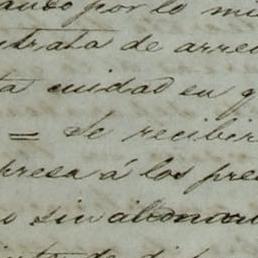 ando por lo mi
ntrata de arre
ta cuidad en q
= Se recibir
presa á los pre
o sin abonar